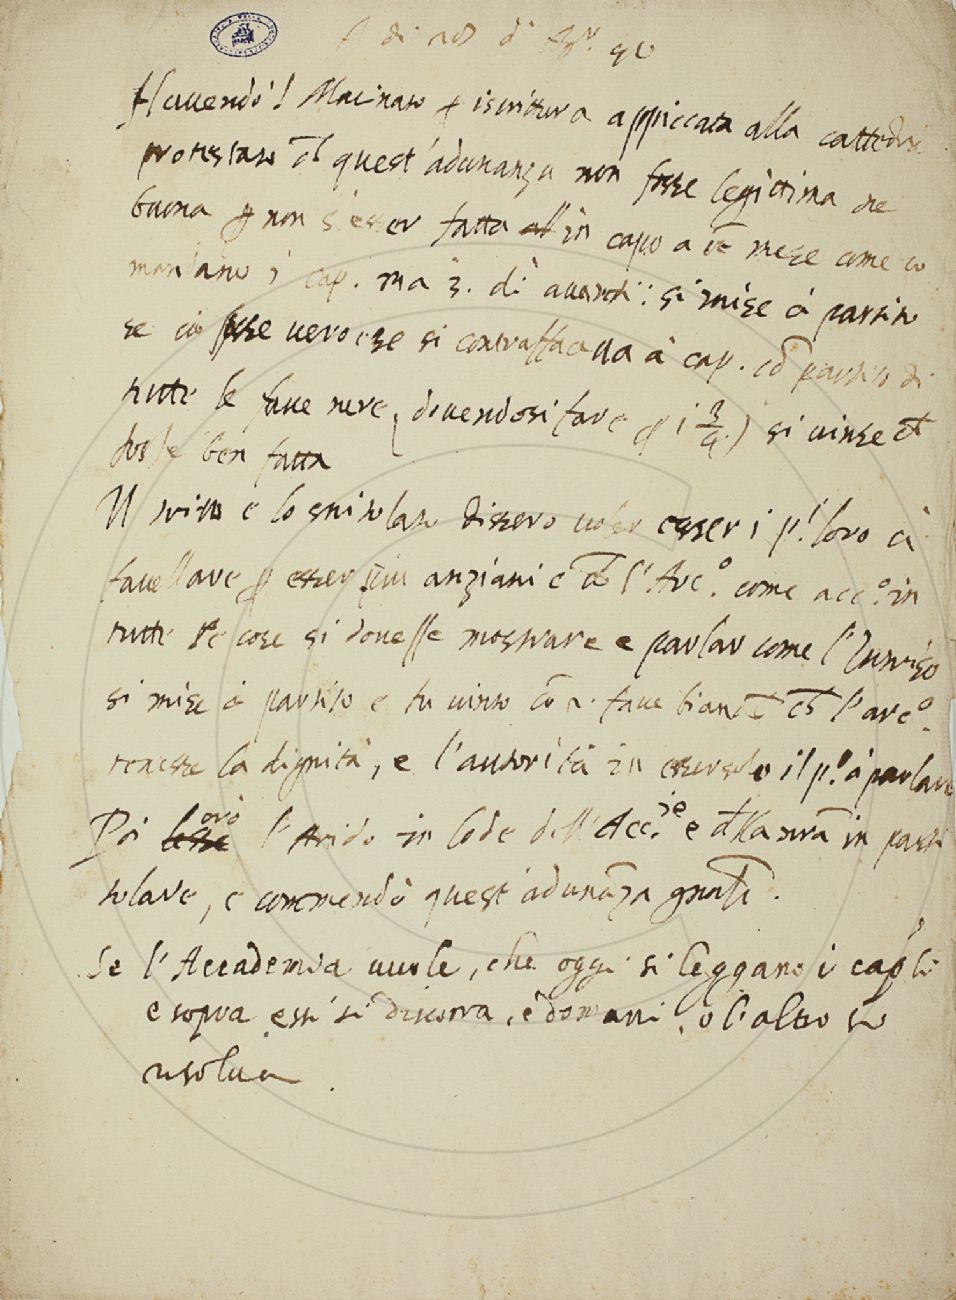 A di 20 d
Havendo il Macinato p iscrittura appiccata alla cattedra
protestato ch quest'adunanza non fosse legittima ne
buona p non s'esser fatta in capo a mese come
mandano i cap. ma 3. dì avanti: si mise à partito
se ciò fosse vero e se si contraffaceva à cap. partito di
tutte le fave nere (dovendosi fare p i 3/4) si vinse ch
fosse ben fatta
Il trito e lo gnitolato dissero voler esser i p.i loro à
favellare p esser più anziani e ch l'Arc.o come acc.o in
tutte le cose si dovesse mostrare e parlar come l'Intriso
si mise à partito e fu vinto fave bianche ch l'arc.o
tenesse la dignità, e l'autorità in essersolo il p.o à parlare
Poi loro l'Arido in lode dell'Acc.ie e in parti
tolare, e commendò quest'adunāza
Se l'Accademia vuole, che oggi si leggano i cap.li
e sopra essi si discorra, e domani, o l'altro si
risolva.